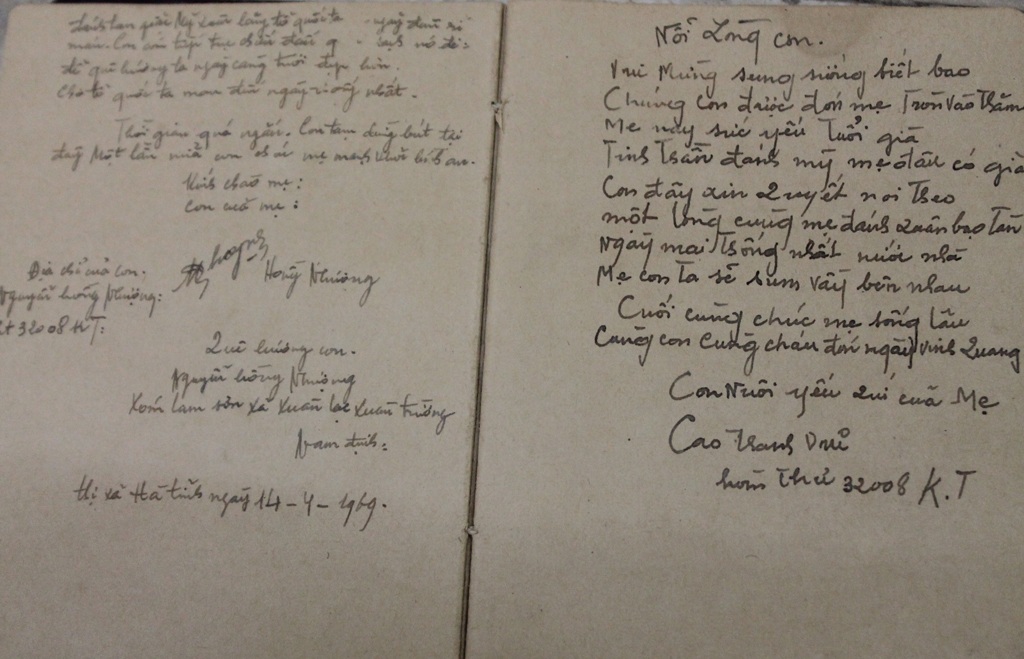 đánh tan giặc Mỹ xâm lăng tổ quốc ta ngày đầu xi
măn. Con còn tiếp tục chiến đấu
để quê hương ta ngày càng tươi đẹp hơn.
Cho tổ quốc ta mau đến ngày thống nhất.
Thời gian quá ngắn. Con tạm dừng bút tại
đây Một lần nữa con chúc mẹ mạnh
Kính chào mẹ:
Con của mẹ:
Hồng Nhường
Địa chỉ của con.
Nguyễn Hồng Nhường:
32008 KT:
Quê hương con.
Nguyễn hồng Nhường
Xóm lam sơn xã xuân lạc xuân trường
Nam định:
Thị xã Hà tĩnh ngày 14-4-1969.
Nỗi Lòng con.
Vui Mừng sung sướng biết bao
Chúng con được đón mẹ Tron vào thăm
Mẹ nay sức yếu Tuổi già
Tinh thần đánh mỹ mẹ đâu có già
Con đây xin Quyết noi theo
một lòng cùng mẹ đánh quân bạo tàn
Ngày mai thống nhất nước nhà
Mẹ con ta sẽ sum vầy bên nhau
Cuối cùng chúc mẹ sống lâu
Cùng con cùng cháu đón ngày vinh Quang
Con Nuôi yếu Quí của Mẹ
Cao Thanh
hòm Thư 32008 K.T